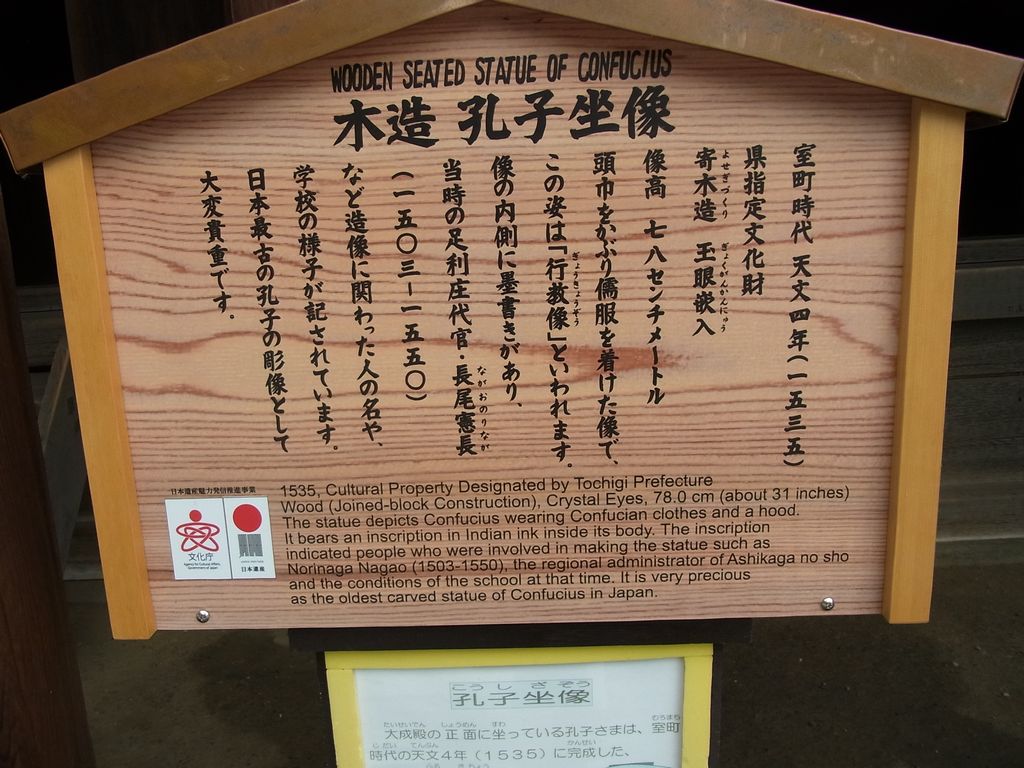 WOODEN SEATED STATUE OF CONFUCIUS
木造 孔子坐像
室町時代 天文四年(一五三五)
県指定文化財
よせぎづくり ぎょくがんかんにゅう
寄木造 玉眼嵌入
像高 七八センチメートル
頭巾をかぶり儒服を着けた像で、
ぎょうきょうぞう
この姿は「行教像」といわれます。
像の内側に墨書きがあり、
ながおのりなが
当時の足利庄代官・長尾憲長
(一五〇三ー一五五〇)
など造像に関わった人の名や、
学校の様子が記されています。
日本最古の孔子の彫像として
大変貴重です。
日本遺産魅力発信推進事業
文化庁
Agency for Cultural Affairs,
Government of Japan
日本遺産
1535, Cultural Property Designated by Tochigi Prefecture
Wood (Joined-block Construction), Crystal Eyes, 78.0 cm (about 31 inches)
The statue depicts Confucius wearing Confucian clothes and a hood.
It bears an inscription in Indian ink inside its body. The inscription
indicated people who were involved in making the statue such as
Norinaga Nagao (1503-1550), the regional administrator of Ashikaga no sho
and the conditions of the school at that time. It is very precious
as the oldest carved statue of Confucius in Japan.
こうし ざぞう
孔子坐像
たいせいでん しょうめん すわ むろまち
大成殿の正面に坐っている孔子さまは、室町
じだい てんぶん かんせい
時代の天文4年(1535)に完成した、